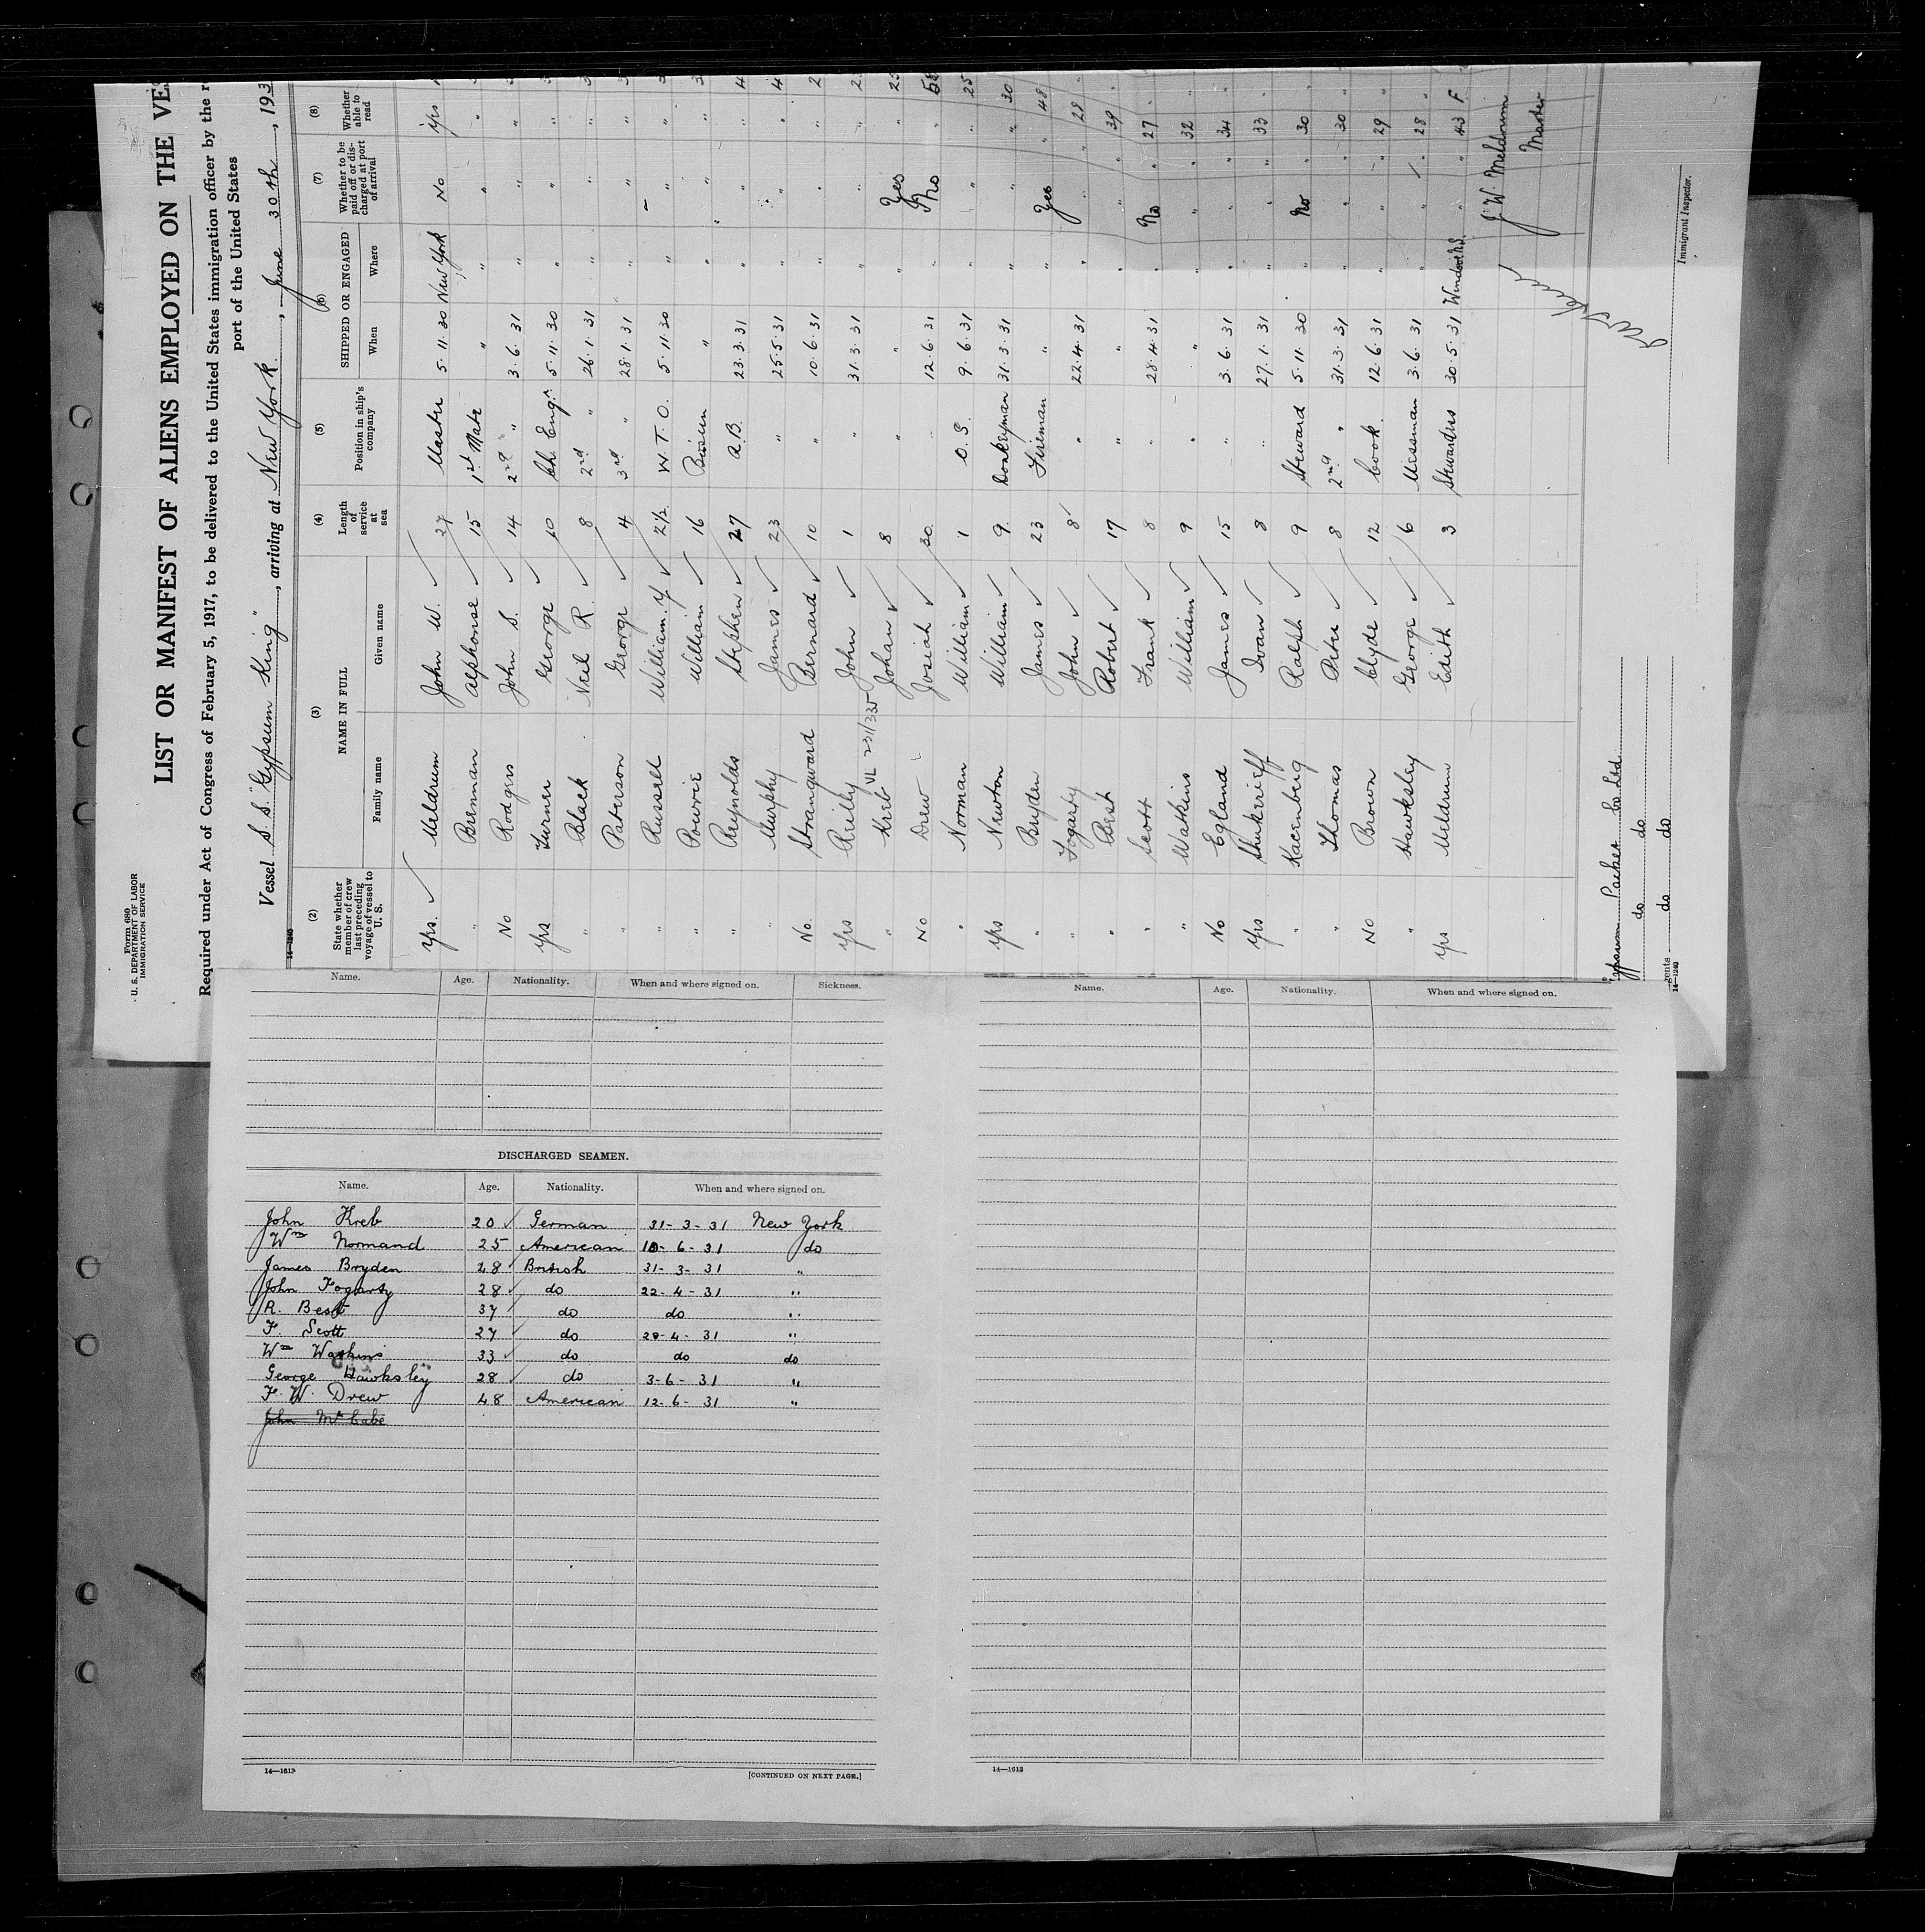 Form 680
U. S. DEPARTMENT OF LABOR
IMMIGRATION SERVICE
LIST OR MANIFEST OF ALIENS EMPLOYED ON THE VES
Required under Act of Congress of February 5, 1917, to be delivered to the United States immigration officer by the r
port of the United States
Vessel S.S. "Gypsum King", arriving at New York, June 30th, 193
14—1240
(2) (3) (4) (5) (6) (7) (8)
State whether member of crew last preceding voyage of vessel to U. S. NAME IN FULL Length of service at sea Position in ship's company SHIPPED OR ENGAGED Whether to be paid off or discharged at port of arrival Whether able to read
Family name Given name When Where
yrs. Meldrum John W. 27 Master 5.11.30 New York No yrs
" Brennan Alphonse 15 1st Mate " " " "
No Rodgers John S. 14 2nd " 3.6.31 " " "
yrs Turner George 10 Ch. Engr. 5.11.30 " " "
" Black Neil R. 8 2nd " 26.1.31 " " "
" Paterson George 4 3rd " 28.1.31 " " "
" Russell William Y 2½ W.T.O. 5.11.30 " " "
" Powrie William 16 Bosun " " " "
" Reynolds Stephen 27 A.B. 23.3.31 " " "
" Murphy James 23 " 25.5.31 " " "
No. Strangward Bernard 10 " 10.6.31 " " "
yrs Reilly John 1 " 31.3.31 " " "
" Kreb Johan 8 " " " Yes "
VL 2311335
No Drew Josiah 30 " 12.6.31 " No "
" Norman William 1 O.S. 9.6.31 " " " 25
yrs Newton William 9 Donkeyman 31.3.31 " " " 30
" Bryden James 23 Fireman " " Yes " 48
" Fogarty John 8 " 22.4.31 " " " 28
" Best Robert 17 " " " " " 39
" Scott Frank 8 " 28.4.31 " No " 27
" Watkins William 9 " " " " " 32
No Egland James 15 " 3.6.31 " " " 34
yrs Shukerieff Ivan 8 " 27.1.31 " " " 33
" Kaernberg Ralph 9 Steward 5.11.30 " No " 30
" Thomas Peter 8 2nd " 31.3.31 " " " 30
No Brown Clyde 12 Cook 12.6.31 " " " 29
" Hawksley George 6 Messman 3.6.31 " " " 28
yrs Meldrum Edith 3 Stewardess 30.5.31 Windsor N.S. " " 43 F
J. W. Meldrum
Master
Packet Co Ltd
do do
do do
14—1240
Immigrant Inspector.
Name. Age. Nationality. When and where signed on. Sickness.
DISCHARGED SEAMEN.
Name. Age. Nationality. When and where signed on.
John Kreb 20 German 31-3-31 New York
Wm Normand 25 American 10-6-31 do
James Bryden 48 British 31-3-31 "
John Fogarty 28 do 22-4-31 "
R. Best 37 do do "
F. Scott 27 do 28-4-31 "
Wm Watkins 33 do do do
George Hawksley 28 do 3-6-31 "
F. W. Drew 48 American 12-6-31 "
John McCabe
14—1613
[CONTINUED ON NEXT PAGE.]
Name. Age. Nationality. When and where signed on.
14—1613